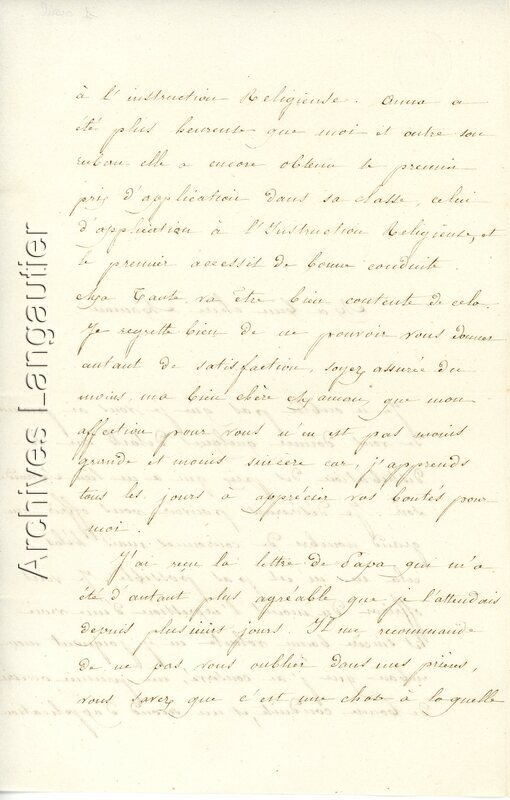 à l'instruction Religieuse. Anna a
été plus heureuse que moi et outre son
ruban elle a encore obtenu le premier
prix d'application dans sa classe, celui
d'application à l'Instruction Religieuse, et
le premier accessit de bonne conduite.
Ma Tante va être bien contente de cela.
Je regrette bien de ne pouvoir vous donner
autant de satisfaction, soyez assurée du
moins, ma bien chère Maman, que mon
affection pour vous n'en est pas moins
grande et moins sincère car, j'apprends
tous les jours à apprécier vos bontés pour
moi.
J'ai reçu la lettre de Papa qui m'a
été d'autant plus agréable que je l'attendais
depuis plusieurs jours. Il me recommande
de ne pas vous oublier dans mes prières,
vous savez que c'est une chose à laquelle
Archives Langautier